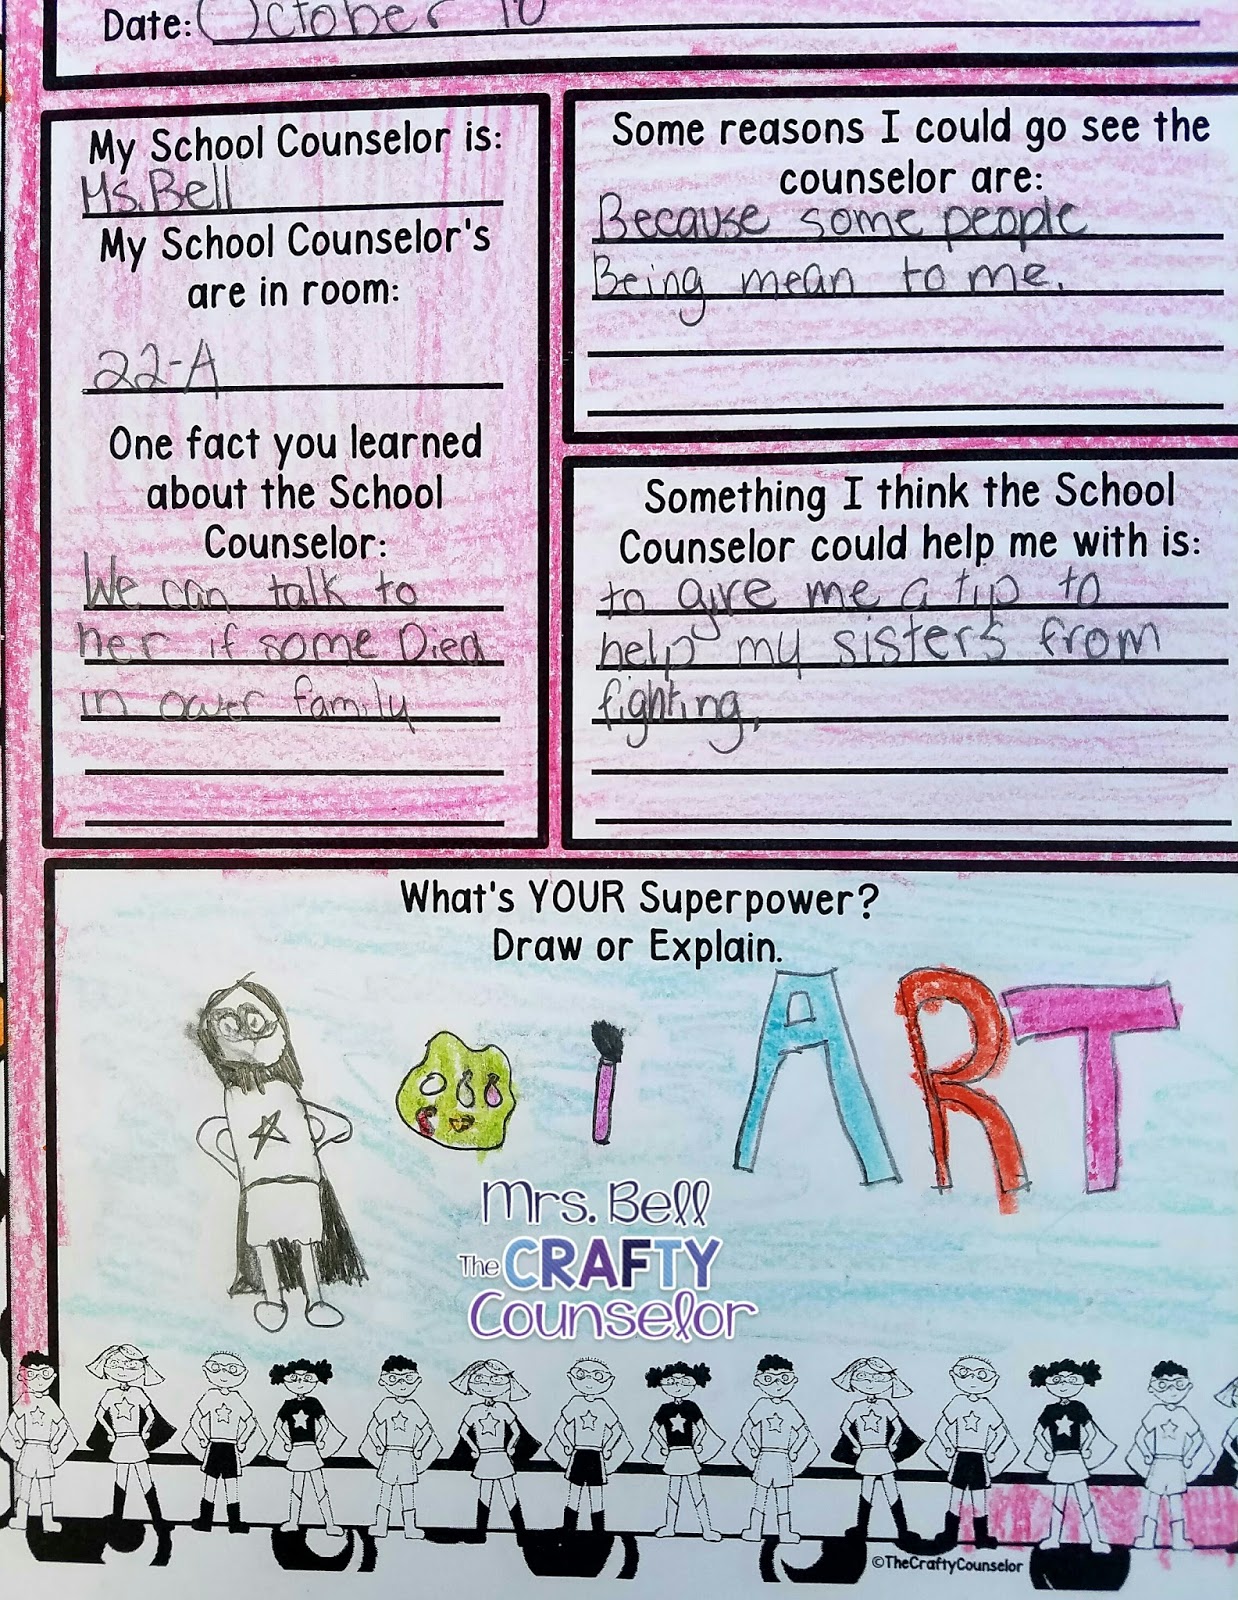 Date: October 10
My School Counselor is:
Ms. Bell
My School Counselor's
are in room:
22-A
One fact you learned
about the School
Counselor:
We can talk to
her if some Died
in ower family
Some reasons I could go see the
counselor are:
Because some people
Being mean to me.
Something I think the School
Counselor could help me with is:
to give me a tip to
help my sisters from
fighting.
What's YOUR Superpower?
Draw or Explain.
ART
Mrs. Bell
The CRAFTY
Counselor
©TheCraftyCounselor